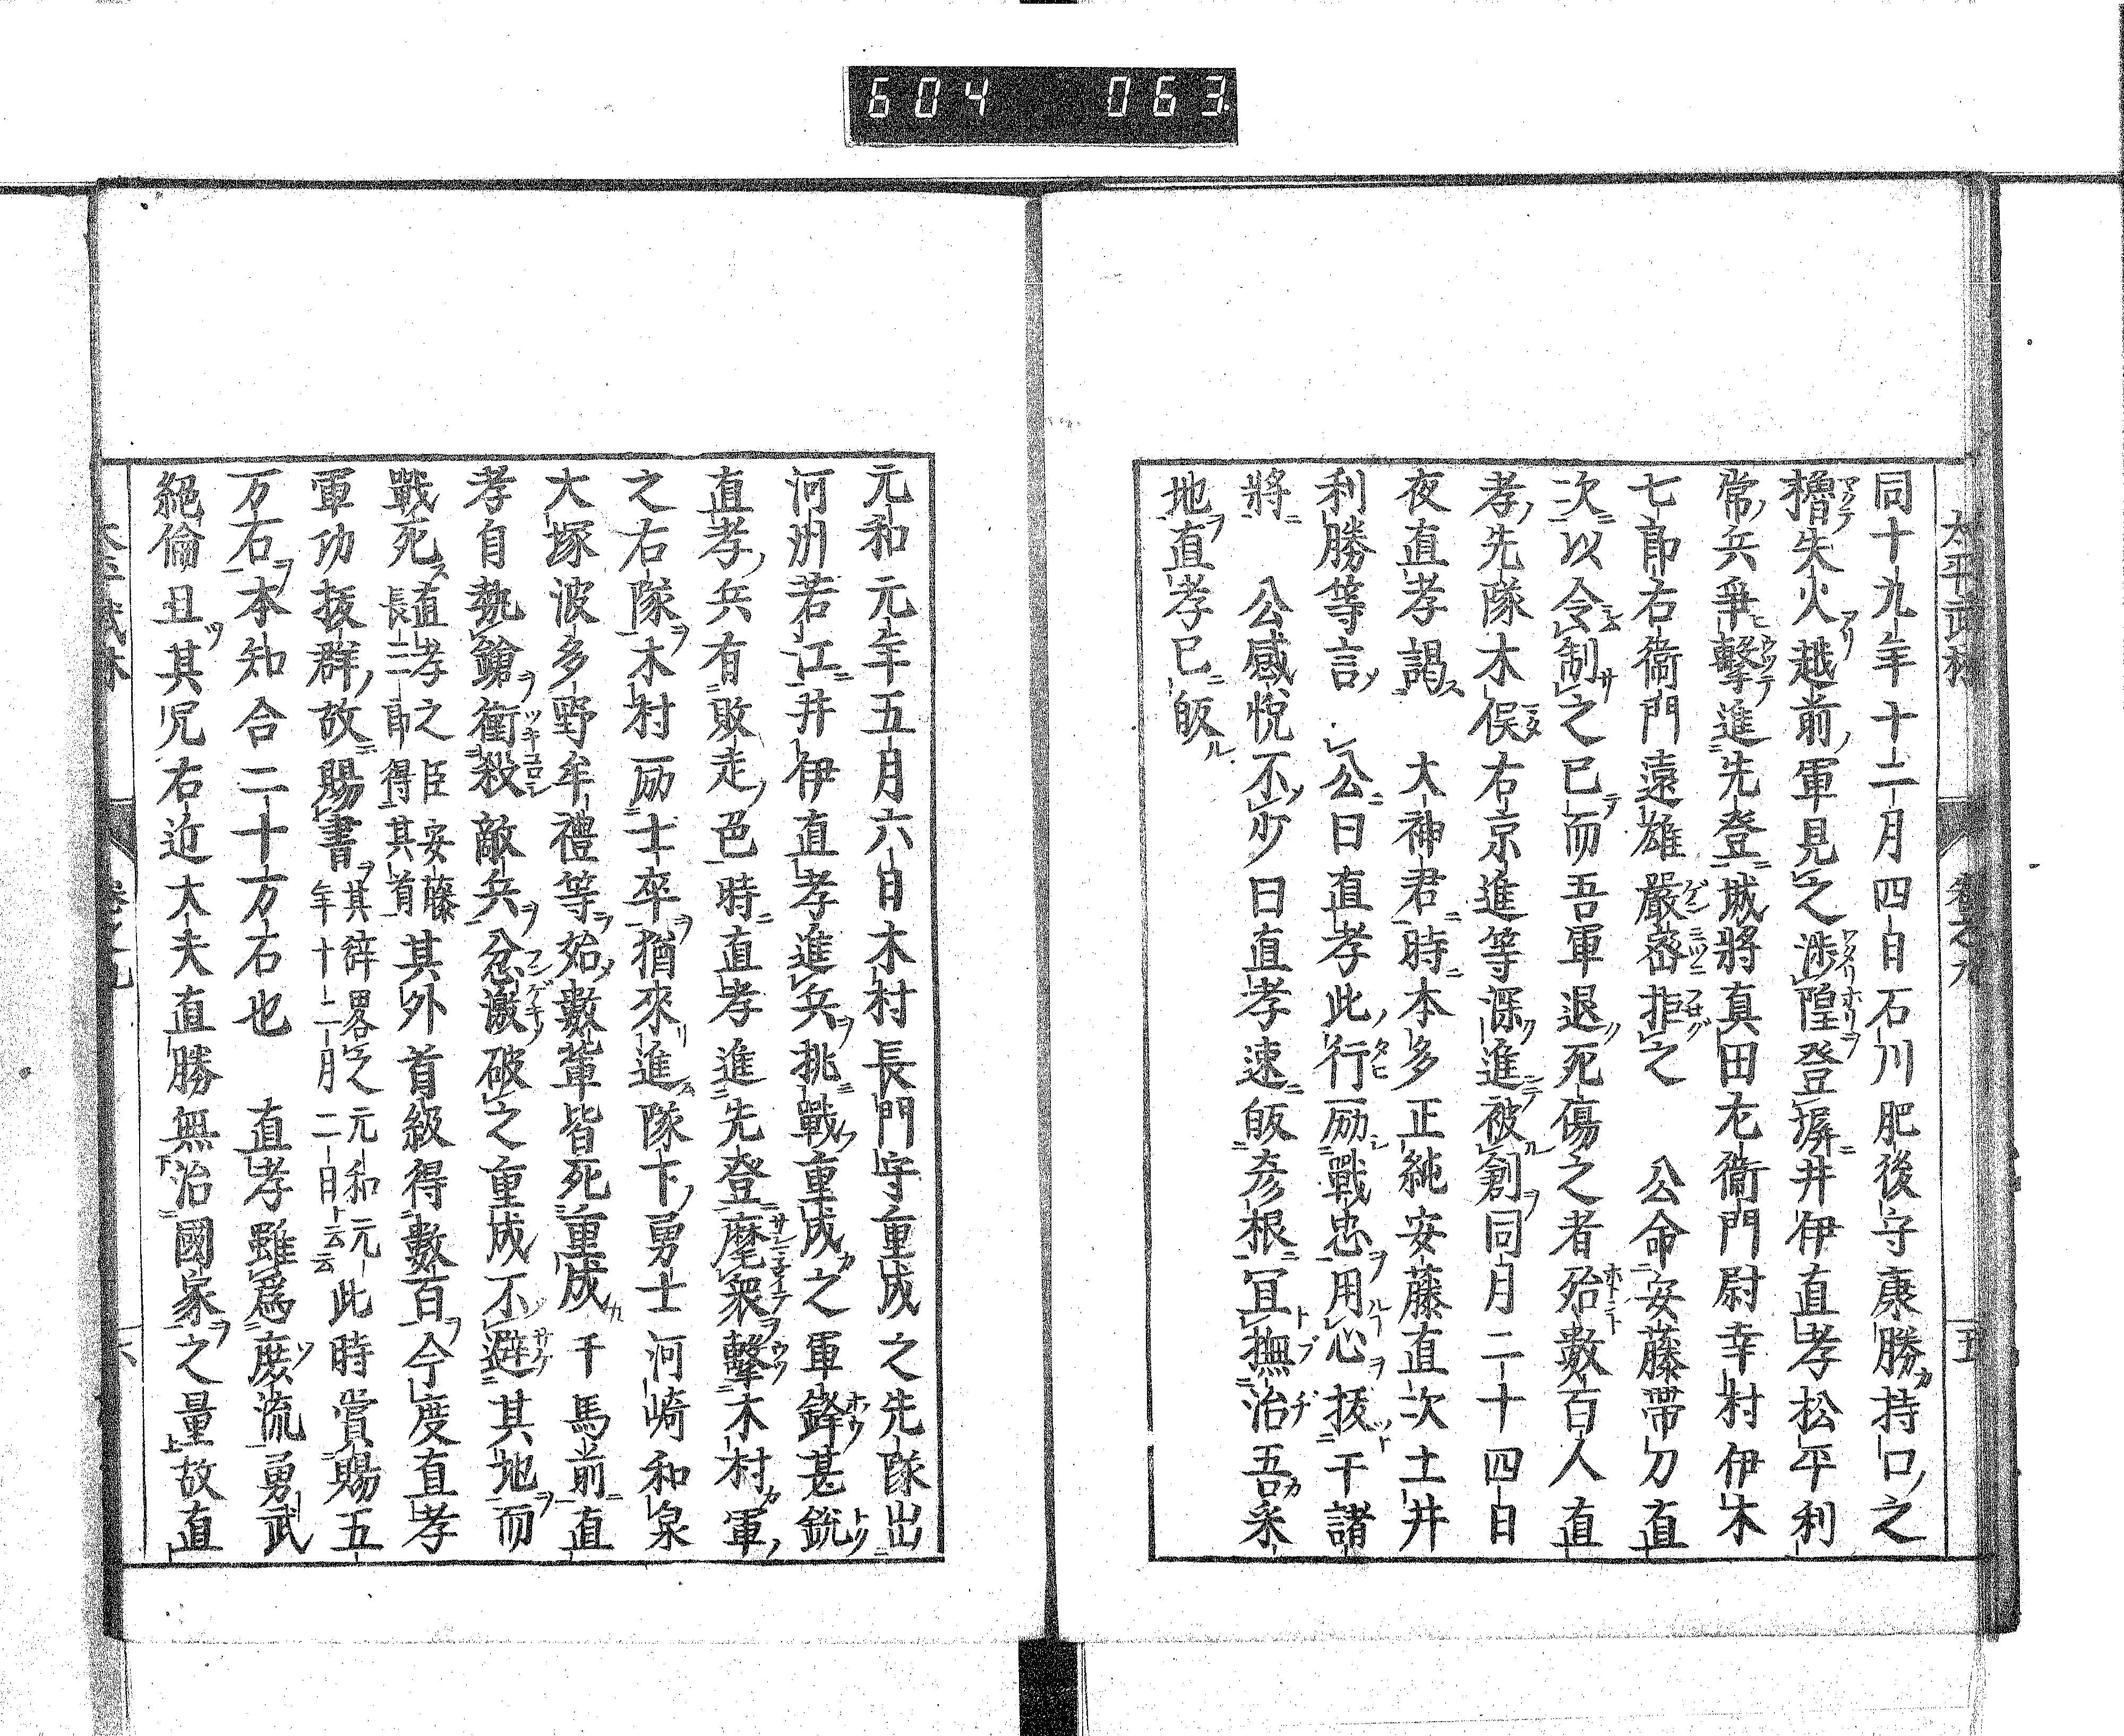 604 063
同十九年十二月四日石川肥後守康勝持口之
櫓失火越前軍見之渉隍登塀井伊直孝松平利
常兵爭擊進先登城將真田尤衞門尉幸村伊木
七郎右衞門遠雄嚴密拒之 公命安藤帶刀直
次以令制之已而吾軍退死傷之者殆數百人直
孝先隊木俣右京進等深進被創同月二十四日
夜直孝謁 大神君時本多正純安藤直次土井
利勝等言 公曰直孝此行励戰忠用心拔干諸
將 公感悦不少曰直孝速皈彦根冝撫治吾釆
地直孝已皈
元和元年五月六日木村長門守重成之先隊出
河州若江井伊直孝進兵挑戰重成之軍鋒甚鋭
直孝兵有敗走色時直孝進先登麾衆擊木村軍
之右隊木村励士卒猶來進隊下勇士河崎和泉
大塚波多野牟禮等始數輩皆死重成千馬前直
孝自執鎗衝殺敵兵忿激破之重成不避其地而
戰死直孝之臣安藤長三郎得其首其外首級得數百今度直孝
軍功拔群故賜書其辞畧之元和元年十二月二日云云此時賞賜五
万石本知合二十万石也 直孝雖爲庶流勇武
絕倫且其兄右近大夫直勝無治國家之量故直